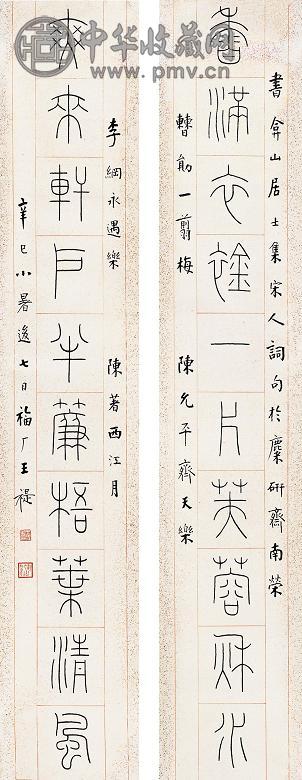 中华收藏网
www.pmv.cn
書弇山居士集宋人詞句於麋研齋南榮
滿一片芙蓉秋水
曹勛一翦梅 陳允平齊天樂
李綱永遇樂 陳著西江月
爽來軒戶半簾梧葉清風
辛巳小暑後七日福厂王禔